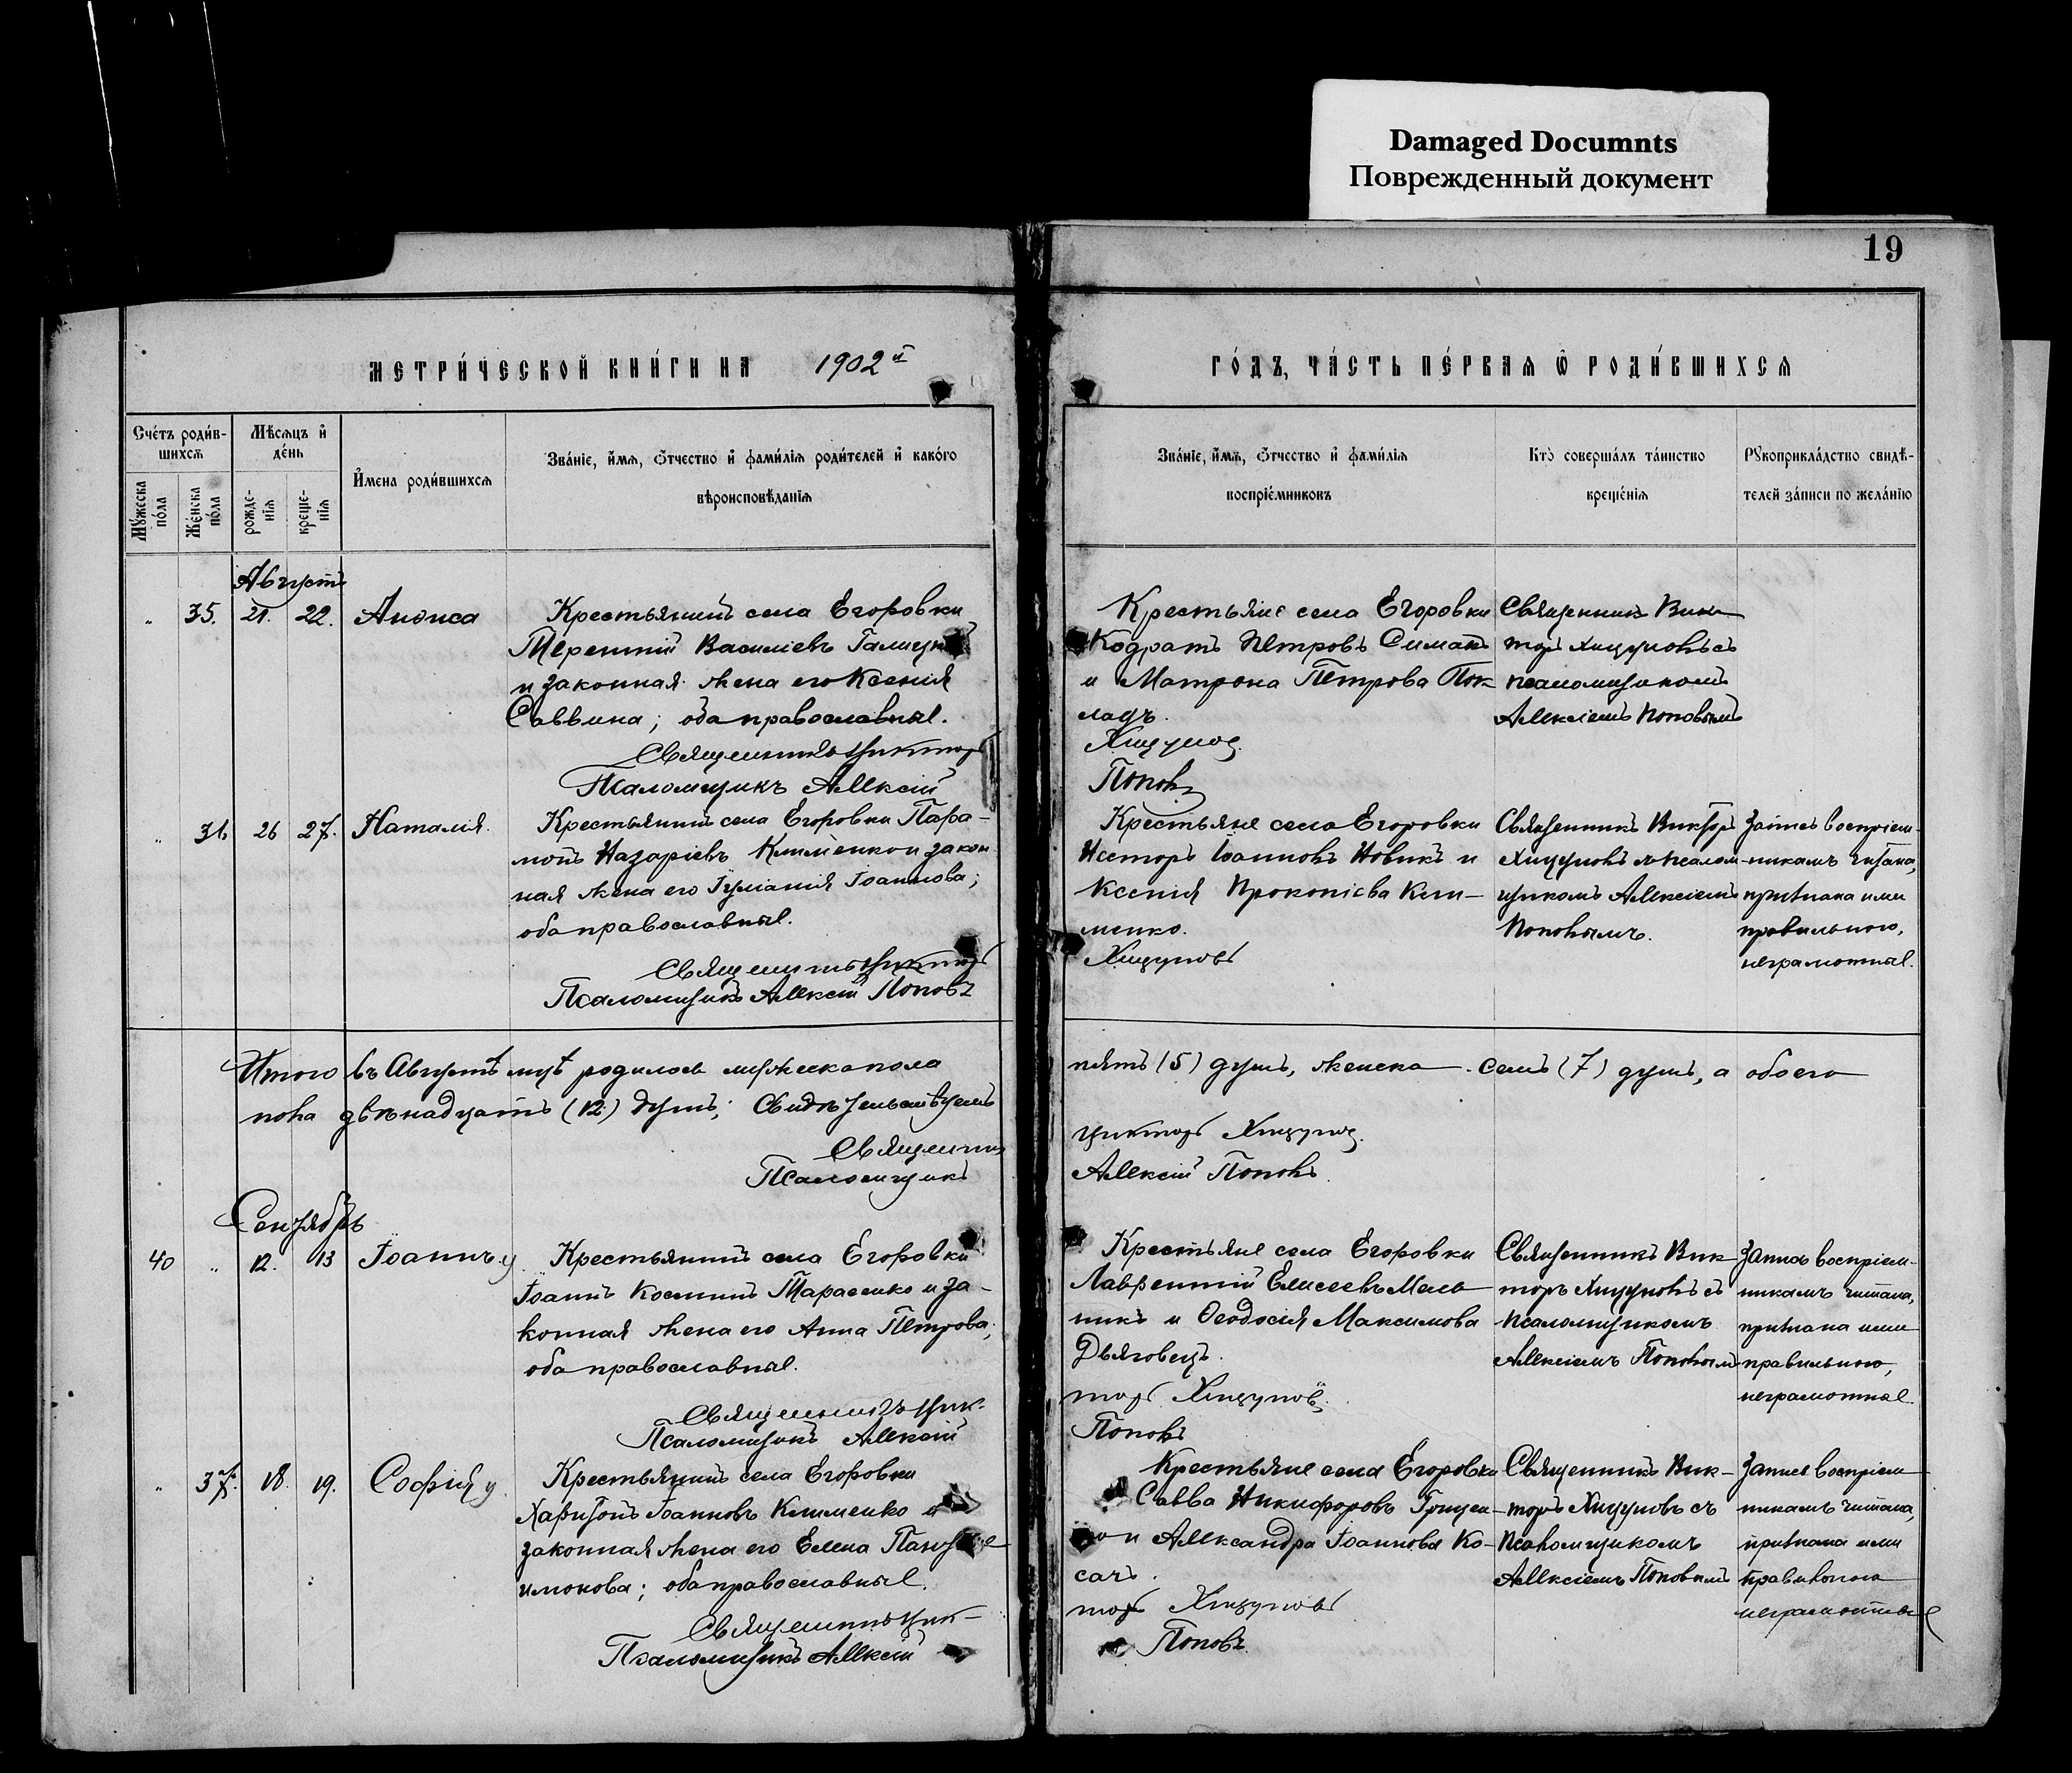 Damaged Documnts
Поврежденный документ
19
МЕТРИ́ЧЕСКОЙ КНИ́ГИ НА 1902й
ГО́ДЪ, ЧА́СТЬ ПЕ́РВАЯ Ѡ РОДИ́ВШИХСЯ
Сче́тъ роди́в-
шихся
Мѣсяцъ и
де́нь
И́мена роди́вшихся
Зва́нїе, и́мя, ѻтчество и фами́лїя роди́телей и како́го
вѣроисповѣданїя
Мꙋ́жеска по́ла
Же́нска по́ла
рожде-
нїя
креще-
нїя
Зва́нїе, и́мя, ѻтчество и фами́лїя
воспрїе́мниковъ
Кто̀ соверша́лъ та́инство
креще́нїя
Рꙋкоприкла́дство свидѣ-
телей за́писи по жела́нїю
Августъ
35. 21. 22. Анѳиса
Крестьянинъ села Егоровки
Терентій Василіевъ
и законная жена его Ксенія
Саввина; оба православные.
Священникъ Виктор
Псаломщикъ Алексій
Крестьяне села Егоровки
Кодратъ Петровъ Симак
и Матрона Петрова Пок-
ладъ.
Хицунов
Поповъ
Священникъ Вик-
торъ Хицуновъ съ
псаломщикомъ
Алексіемъ Поповымъ
36 26 27. Наталія.
Крестьянинъ села Егоровки Пара-
монъ Назаріевъ Клименко и закон
ная жена его Іуліанія Іоаннова;
оба православные.
Священникъ Виктор
Псаломщикъ Алексій Поповъ
Крестьяне села Егоровки
Несторъ Іоанновъ Новикъ и
Ксенія Прокопіева Кли-
менко.
Хицуновъ
Священникъ Викторъ
Хицуновъ съ псалом-
щикомъ Алексіемъ
Поповымъ.
Запись воспріем-
никамъ читана,
признана ими
правильною,
неграмотные.
Итого въ Августѣ мцѣ родилось мужеска пола
пять (5) душъ, женска – семь (7) душъ, а обоего
пола двѣнадцать (12) душъ; Свидѣтельствуемъ
Священник
Виктор Хицунов.
Псаломщикъ
Алексій Поповъ.
Сентябрь
40 " 12. 13 Іоаннъ
Крестьянинъ села Егоровки
Іоаннъ Косминъ Тарасенко и за-
конная жена его Анна Петрова,
оба православные.
Священникъ Вик-
Псаломщикъ Алексій
Крестьяне села Егоровки
Лаврентій Елисеевъ Мель
никъ и Ѳеодосія Максимова
Дьяговецъ.
тор Хицуновъ.
Поповъ
Священникъ Вик
торъ Хицуновъ съ
псаломщикомъ
Алексіемъ Поповым
Запись воспріем-
никамъ читана,
признана ими
правильною,
неграмотные.
37. 18. 19. Софія
Крестьянинъ села Егоровки
Харитонъ Іоанновъ Клименко и
законная жена его Елена
имонова; оба православные.
Священникъ Вик-
Псаломщикъ Алексій
Крестьяне села Егоровки
Савва Никифоровъ Грицен-
ко и Александра Іоаннова Ко-
сачъ.
тор Хицуновъ
Поповъ.
Священникъ Вик-
торъ Хицуновъ съ
Псаломщикомъ
Алексіемъ Поповымъ
Запись воспріем
никамъ читана,
признана ими
правильною
неграмотные